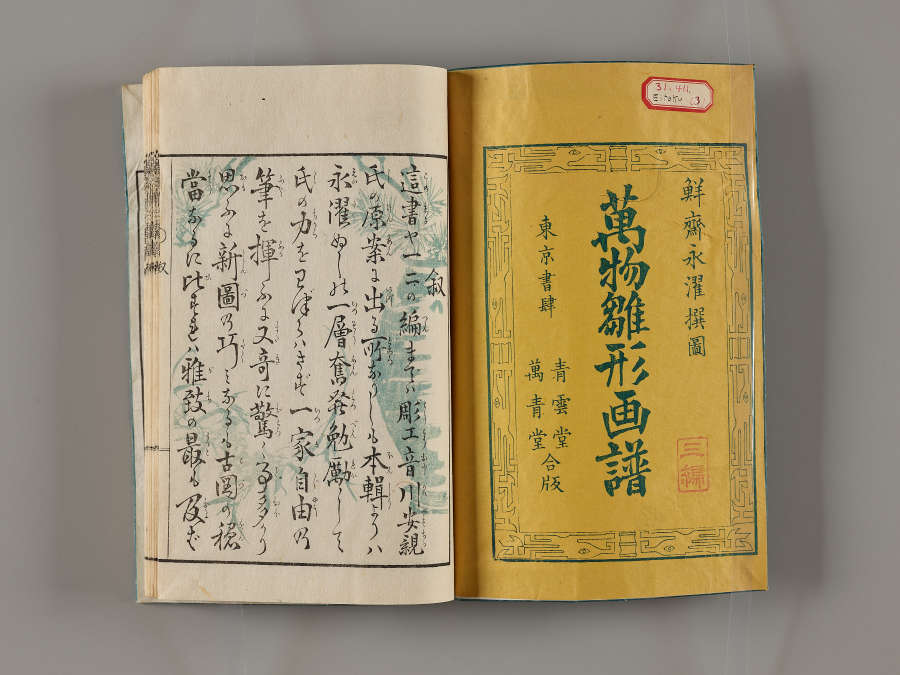 31.4H.
Eitaku (3)
鮮齋永濯撰圖
萬物雛形画譜
三編
東京書肆
青雲堂
萬青堂
合版
叙
這書や一二の編までハ彫工音川安親
氏の原案に出る所なりしも本輯よりハ
永濯ぬしの一層奮発勉勵して
氏の力を
一家自由の
筆を揮ふに又奇に驚
思ふに新圖の巧みなるも古図の
當なるに比すれハ雅致の最も及ばず
叙